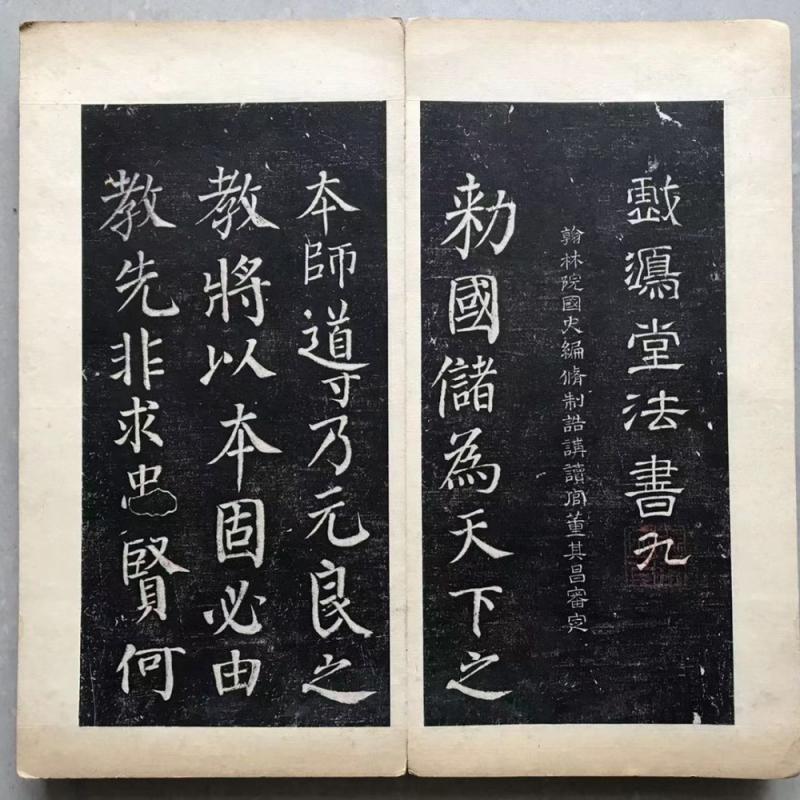 戲鴻堂法書九
翰林院國史編脩制誥講讀官董其昌審定
勅國儲為天下之
本師導乃元良之
教將以本固必由
教先非求忠賢何